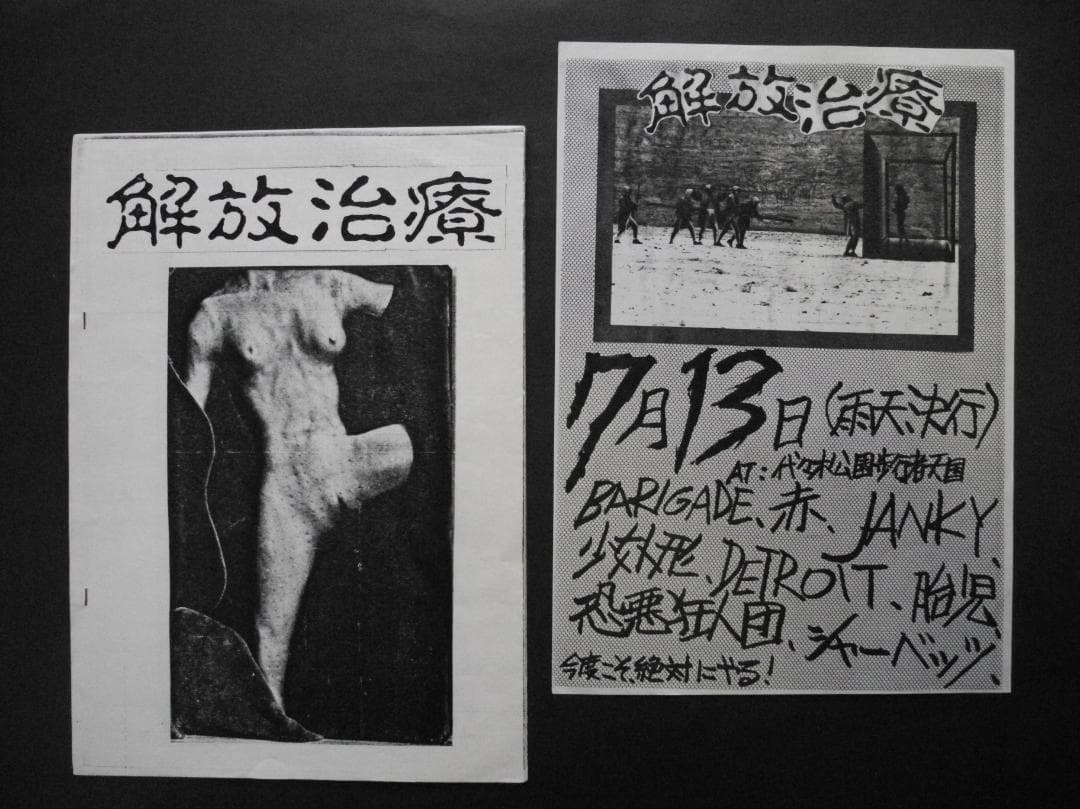 解放治療
解放治療
7月13日(雨天、決行)
AT:代々木公園歩行者天国
BARIGADE、赤、JANKY、
少女人形、DETROIT、胎児、
恐悪狂人団、シャーベッツ、
今度こそ、絶対にやる!